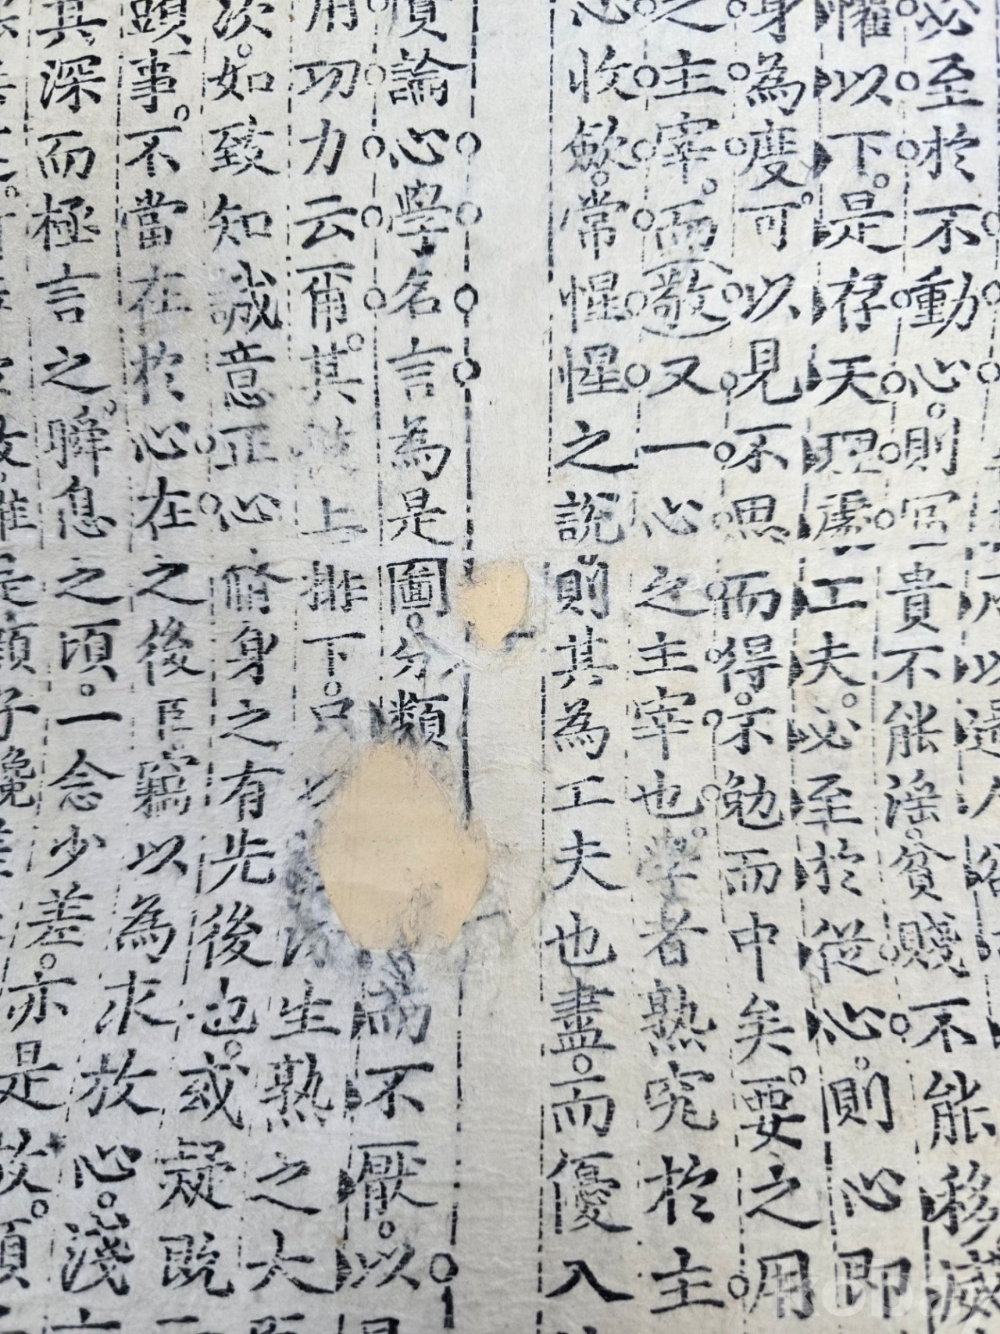 以遏人
必至於不動心則冨貴不能淫貧賤不能移威
懼以下是存天理處工夫必至於從心則心即
身為度可以見不思而得不勉而中矣要之用
之主宰而敬又一心之主宰也學者熟究於主
心收斂常惺惺之說則其為工夫也盡而優入
論心學名言為是圖分類為不厭以
用功力云爾其上排下只生熟之大
次如致知誠意正心脩身之有先後也或疑既
事不當在於心在之後臣竊以為求放心淺
其深而極言之瞬息之頃一念少差亦是放顏